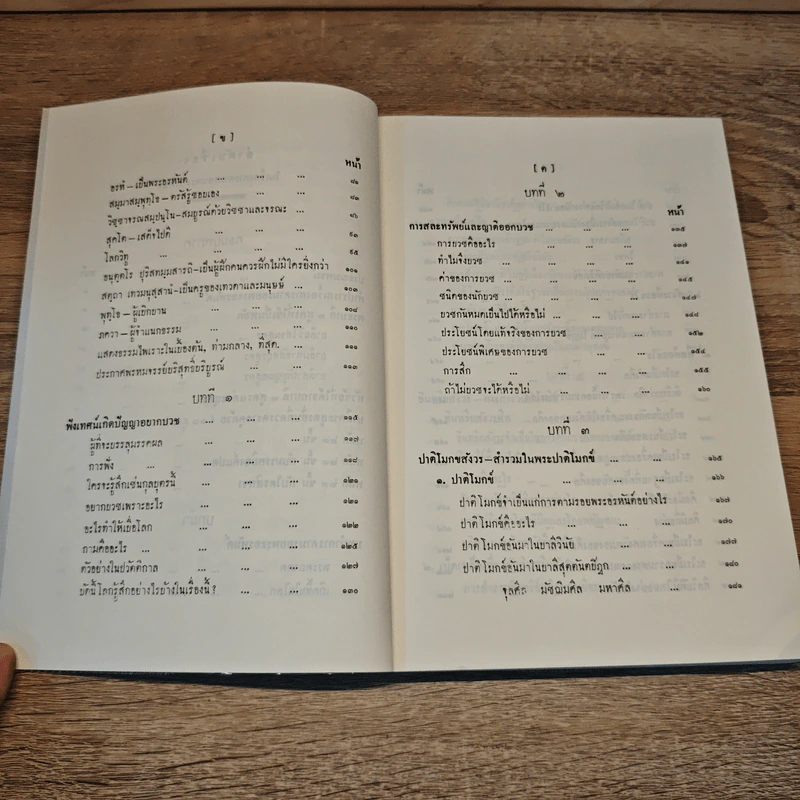 [ ข ]
หน้า
อรหํ—เป็นพระอรหันต์ ... ... ... ๘๑
สมฺมาสมฺพุทฺโธ—ตรัสรู้ชอบเอง ... ... ๘๓
วิชฺชาจรณสมฺปนฺโน—สมบูรณ์ด้วยวิชชาและจรณะ ... ๘๖
สุคโต—เสด็จไปดี ... ... ... ๙๓
โลกวิทู ... ... ... ... ๙๕
อนุตฺตโร ปุริสทมฺมสารถิ—เป็นผู้ฝึกคนควรฝึกไม่มีใครยิ่งกว่า ๑๐๑
สตฺถา เทวมนุสฺสานํ—เป็นครูของเทวดาและมนุษย์ ... ๑๐๓
พุทฺโธ—ผู้เบิกบาน ... ... ... ๑๐๘
ภควา—ผู้จำแนกธรรม ... ... ... ๑๑๐
แสดงธรรมไพเราะในเบื้องต้น, ท่ามกลาง, ที่สุด. ... ๑๑๑
ประกาศพรหมจรรย์บริสุทธิ์บริบูรณ์ ... ... ๑๑๓
บทที่ ๑
ฟังเทศน์เกิดปัญญาอยากบวช ... ... ... ๑๑๕
ผู้ที่จะบรรลุมรรคผล ... ... ... ๑๑๗
การฟัง ... ... ... ... ๑๑๘
ใครจะรู้สึกเช่นกุลบุตรนี้ ... ... ... ๑๒๑
อยากบวชเพราะอะไร ... ... ... ๑๒๑
อะไรทำให้เบื่อโลก ... ... ... ๑๒๒
กามคืออะไร ... ... ... ... ๑๒๕
ตัวอย่างในปวัตติกาล ... ... ... ๑๒๗
บัดนี้โลกรู้สึกอย่างไรบ้างในเรื่องนี้? ... ... ๑๓๐
[ ค ]
บทที่ ๒
หน้า
การสละทรัพย์และญาติออกบวช ... ... ... ๑๓๕
การบวชคืออะไร ... ... ... ๑๓๗
ทำไมจึงบวช ... ... ... ๑๔๑
ค่าของการบวช ... ... ...
ชนิดของนักบวช ... ... ... ๑๔๗
บวชกันหมดเป็นไปได้หรือไม่ ... ... ... ๑๔๘
ประโยชน์โดยแท้จริงของการบวช ... ... ๑๕๒
ประโยชน์พิเศษของการบวช ... ... ... ๑๕๔
การสึก ... ... ... ... ๑๕๕
ถ้าไม่บวชจะได้หรือไม่ ... ... ... ๑๖๐
บทที่ ๓
ปาติโมกขสังวร—สำรวมในพระปาติโมกข์ ... ... ๑๖๕
๑. ปาติโมกข์ ... ... ... ๑๖๖
ปาติโมกข์จำเป็นแก่การตามรอยพระอรหันต์อย่างไร ๑๖๗
ปาติโมกข์คืออะไร ... ... ... ๑๗๐
ปาติโมกข์อันมาในบาลีวินัย ... ... ๑๗๗
ปาติโมกข์อันมาในบาลีสุตตันตปิฎก ... ... ๑๘๐
จุลศีล มัชฌิมศีล มหาศีล ... ๑๘๑